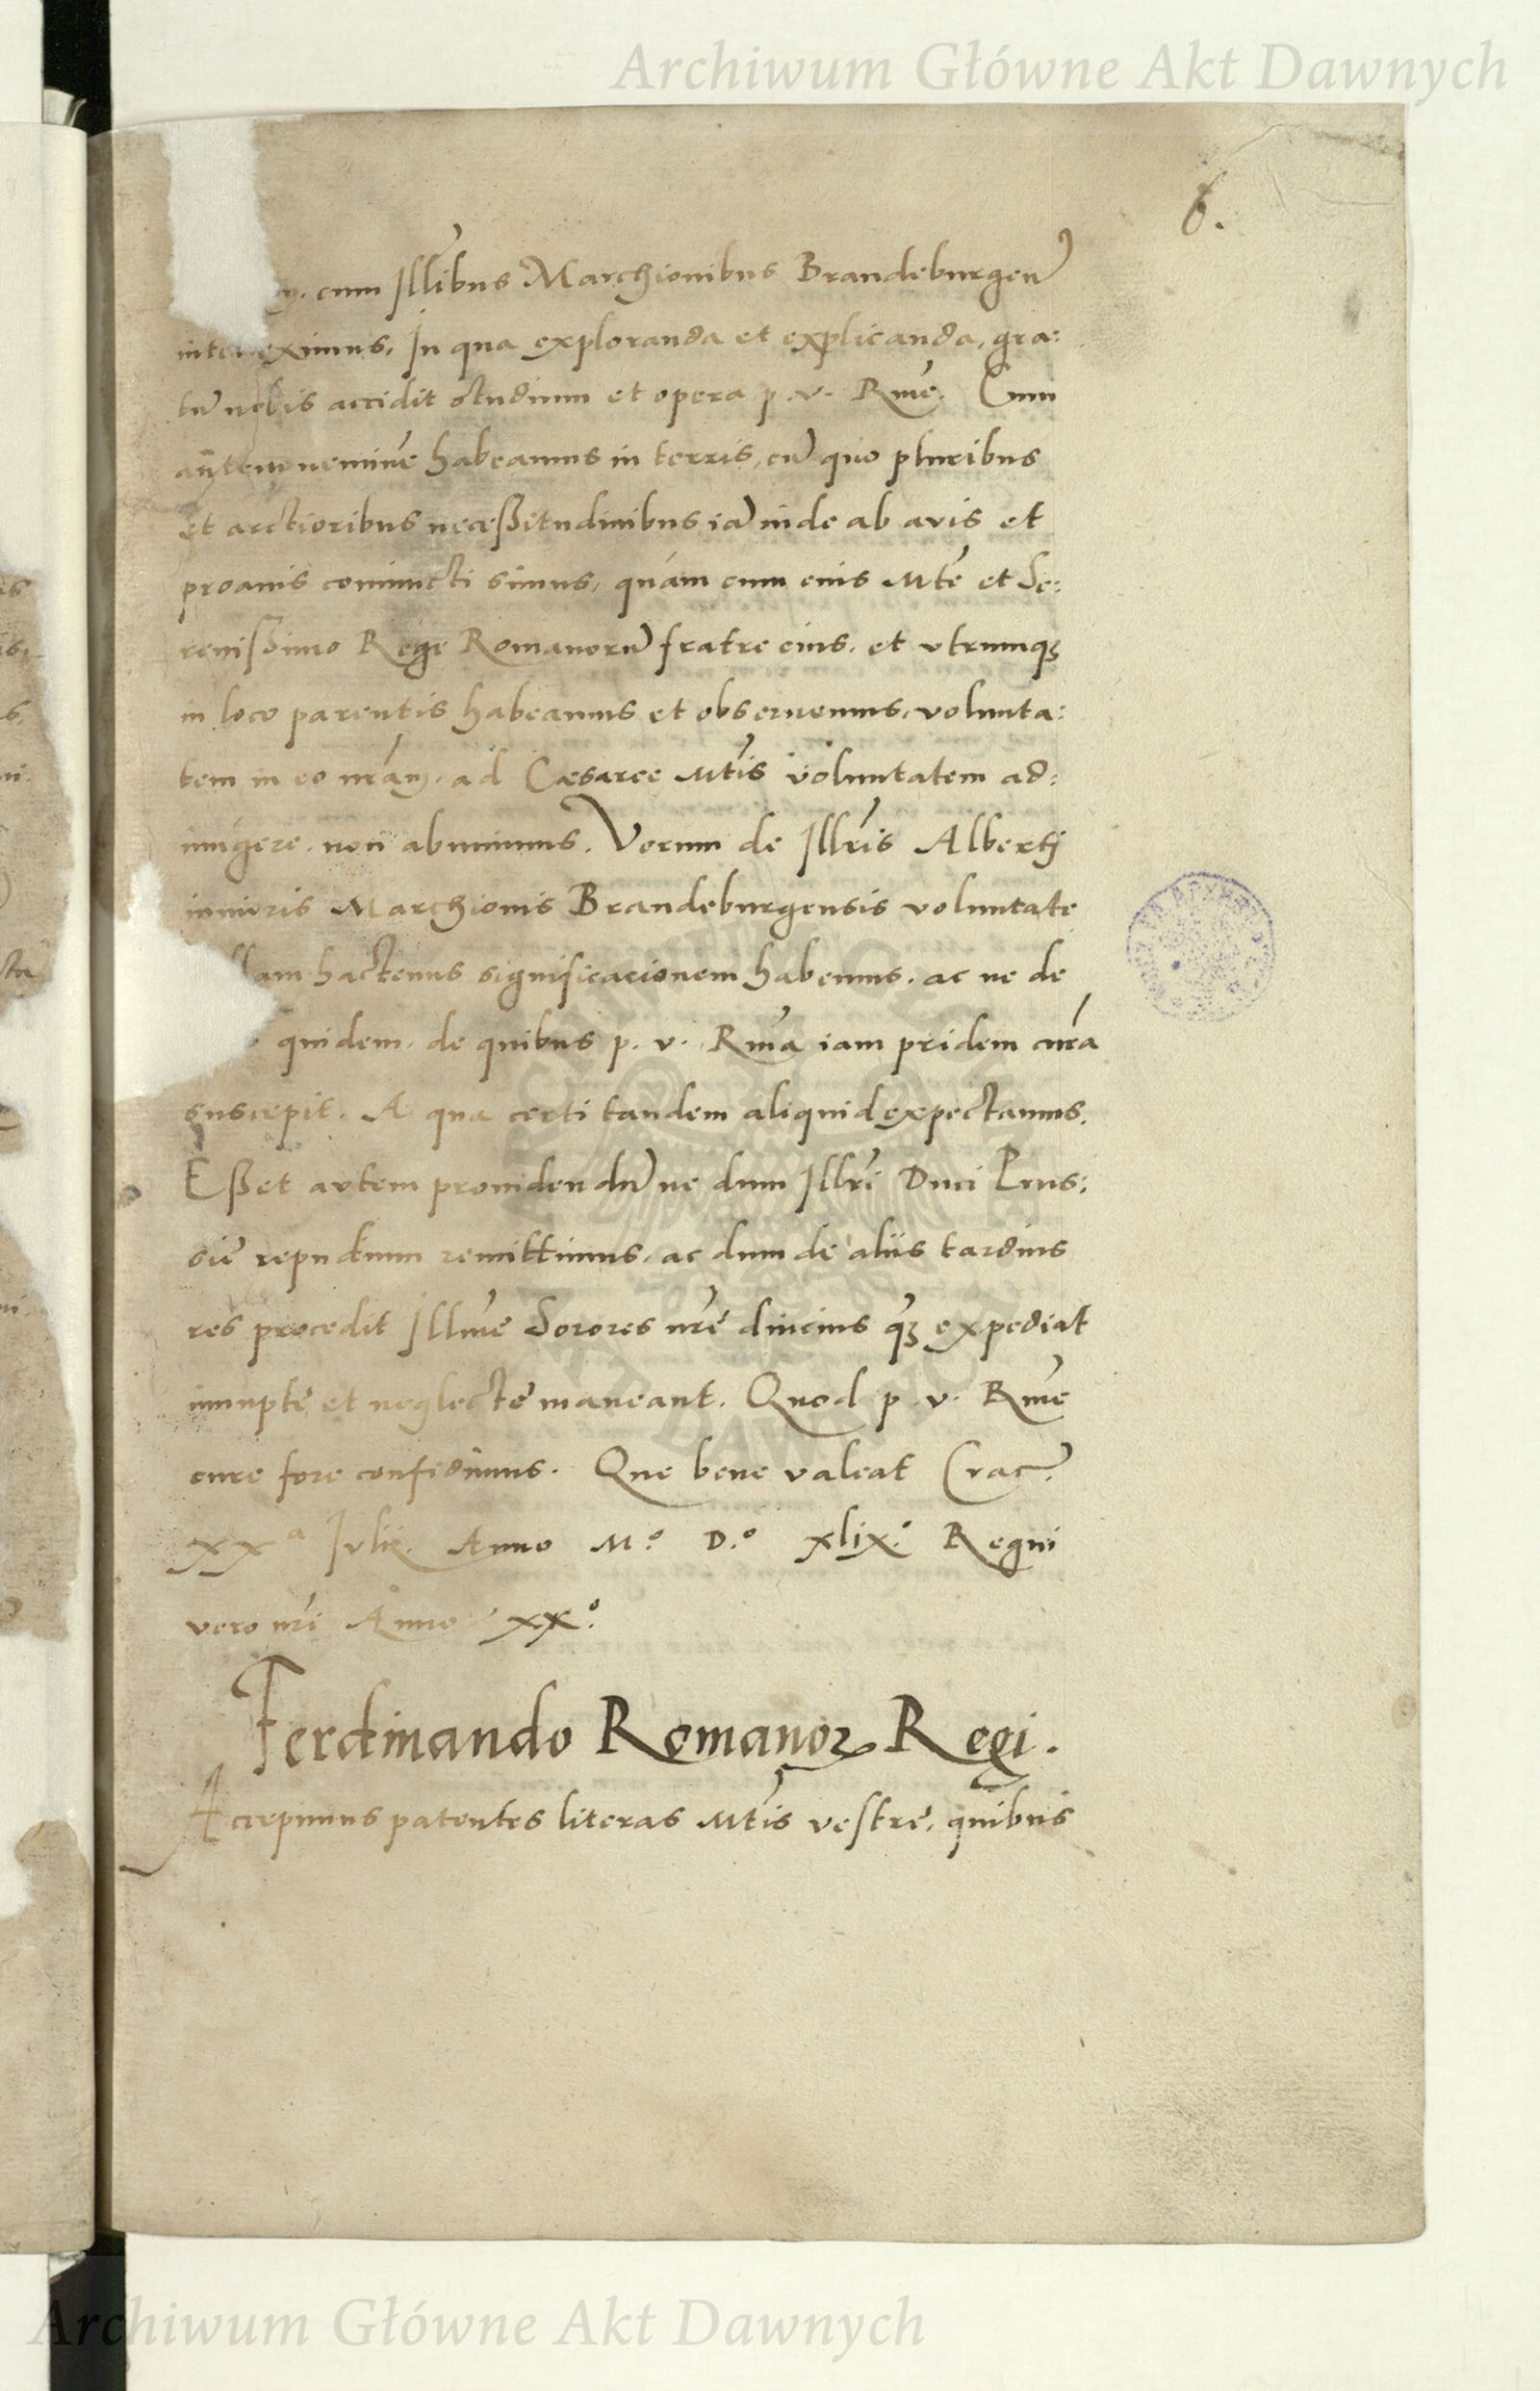 Archiwum Główne Akt Dawnych
6.
cum Illr̃ibus Marchionibus Brandeburgen̄
inte eximus. In qua exploranda et explicanda, gra:
tū nobis accidit studium et opera p. v. Rm̃e. Cum
autem neminē habeamus in terris, cū quo pluribus
et arctioribus neceßitudinibus iā inde ab avis et
proauis coniuncti simus, quàm cum eius Mtẽ et Se:
renißimo Rege Romanorū fratre eius, et vtrumqꝫ
in loco parentis habeamus et obseruemus, volunta:
tem in eo nrãm, ad Cæsaree Mtĩs voluntatem ad:
iungere non abnuimus. Verum de Illrĩs Albertj
iunioris Marchionis Brandeburgensis voluntate
llam hactenus significacionem habemus, ac ne de
quidem, de quibus p. v. Rmã iam pridem curã
suscepit. A qua certi tandem aliquid expectamus.
Eßet avtem prouidendū ne dum Illrĩ Duci Prus:
siẽ repudium remittimus, ac dum de aliis tardius
res procedit Illmẽ Sorores nrẽ diucius qꝫ expediat
innuptẽ et neglectẽ maneant. Quod p. v. Rmẽ
cure fore confidimus. Que bene valeat Crac̄.
XXª Iulij. Anno M.º D.º xlix.º Regni
vero nrĩ Anno XX.º
Ferdinando Romanoꝝ Regi.
Accepimus patentes literas Mtĩs vestrẽ, quibus
Archiwum Główne Akt Dawnych